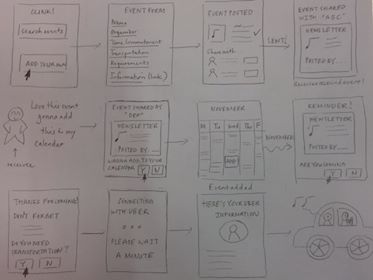 CLINK!
Search events
ADD YOUR OWN
EVENT FORM
Name
Organizer
Time Commitment
Transportation
Requirements
Information (links)
EVENT POSTED
Share with
SENT!
EVENT SHARED
WITH "ABC"
NEWSLETTER
POSTED BY....
Love this event
gonna add
this to my
calendar
receiver
EVENT SHARED BY
"DEF"
NEWSLETTER
POSTED BY....
WANNA ADD TO YOUR
CALENDAR
Y
N
NOVEMBER
M
Tu
Wed
Th
F
ADD
Event added
NOVEMBER
REMINDER!
NEWSLETTER
POSTED BY....
ARE YOU GOING
Y
N
THANKS FOR JOINING!
DON'T FORGET
DO YOU NEED
TRANSPORTATION?
Y
N
CONNECTING
WITH UBER
...
PLEASE WAIT
A MINUTE
HERE'S YOUR UBER
INFORMATION